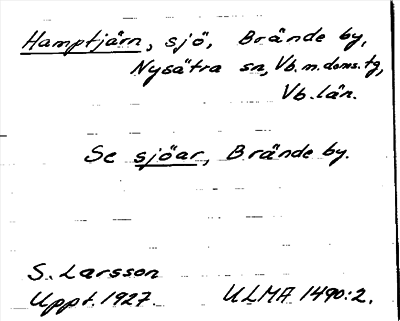 Hamptjärn, sjö, Brände by,
Nysätra sn, Vb. n. doms. tg,
Vb. län.
Se sjöar, Brände by.
S. Larsson
Uppt. 1927. ULMA 1490:2.